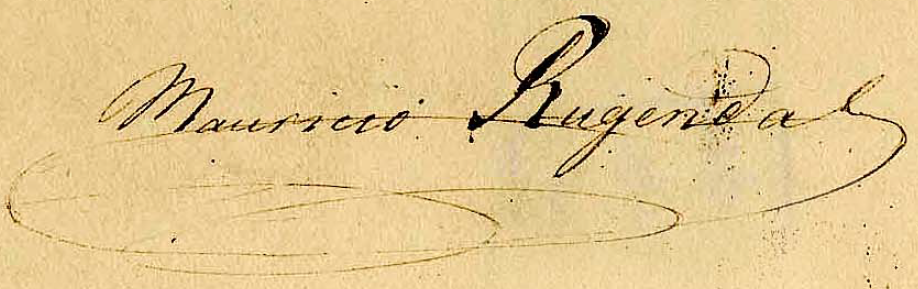 Mauricio Rugendas